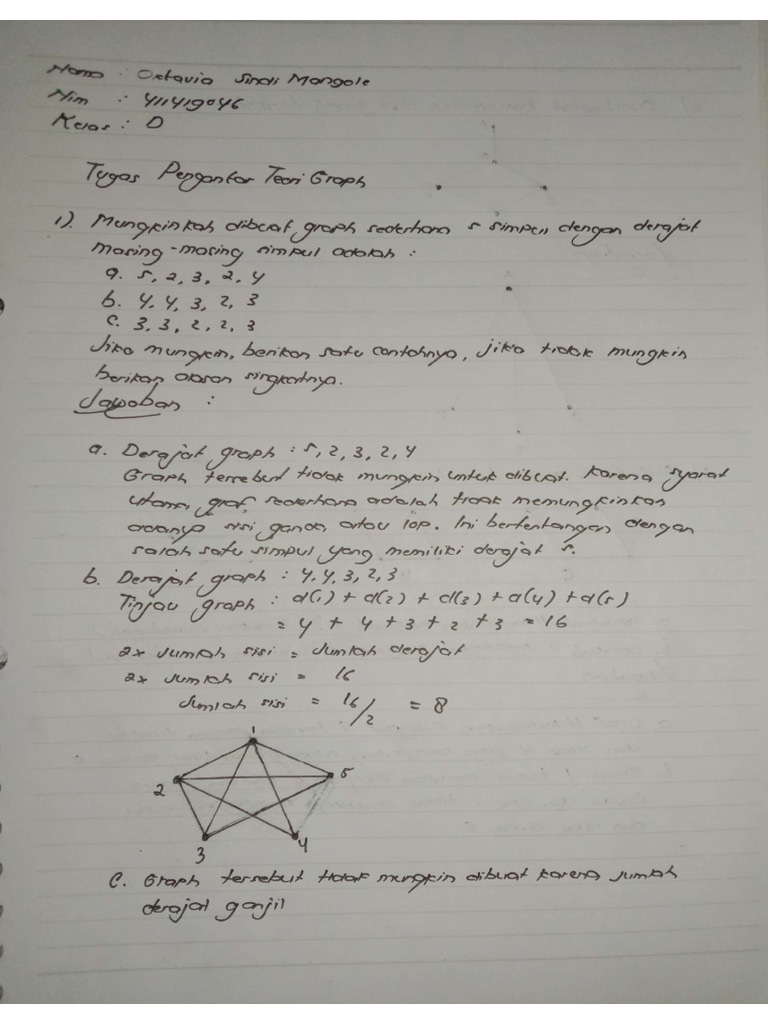 Nama : Oktavia Sindi Mangole
Nim : 411419046
Kelas : D
Tugas Pengantar Teori Graph
1). Mungkinkah dibuat graph sederhana 5 simpul dengan derajat
masing-masing simpul adalah :
a. 5, 2, 3, 2, 4
b. 4, 4, 3, 2, 3
c. 3, 3, 2, 2, 3
Jika mungkin, berikan satu contohnya, jika tidak mungkin
berikan alasan singkatnya.
Jawaban :
a. Derajat graph : 5, 2, 3, 2, 4
Graph tersebut tidak mungkin untuk dibuat. Karena syarat
utama graf sederhana adalah tidak memungkinkan
adanya sisi ganda atau lop. Ini bertentangan dengan
salah satu simpul yang memiliki derajat 5.
b. Derajat graph : 4, 4, 3, 2, 3
Tinjau graph : d(1) + d(2) + d(3) + d(4) + d(5)
= 4 + 4 + 3 + 2 + 3 = 16
2x Jumlah sisi = Jumlah derajat
2x Jumlah sisi = 16
Jumlah sisi = 16/2 = 8
1
2
5
3
4
c. Graph tersebut tidak mungkin dibuat karena jumlah
derajat ganjil